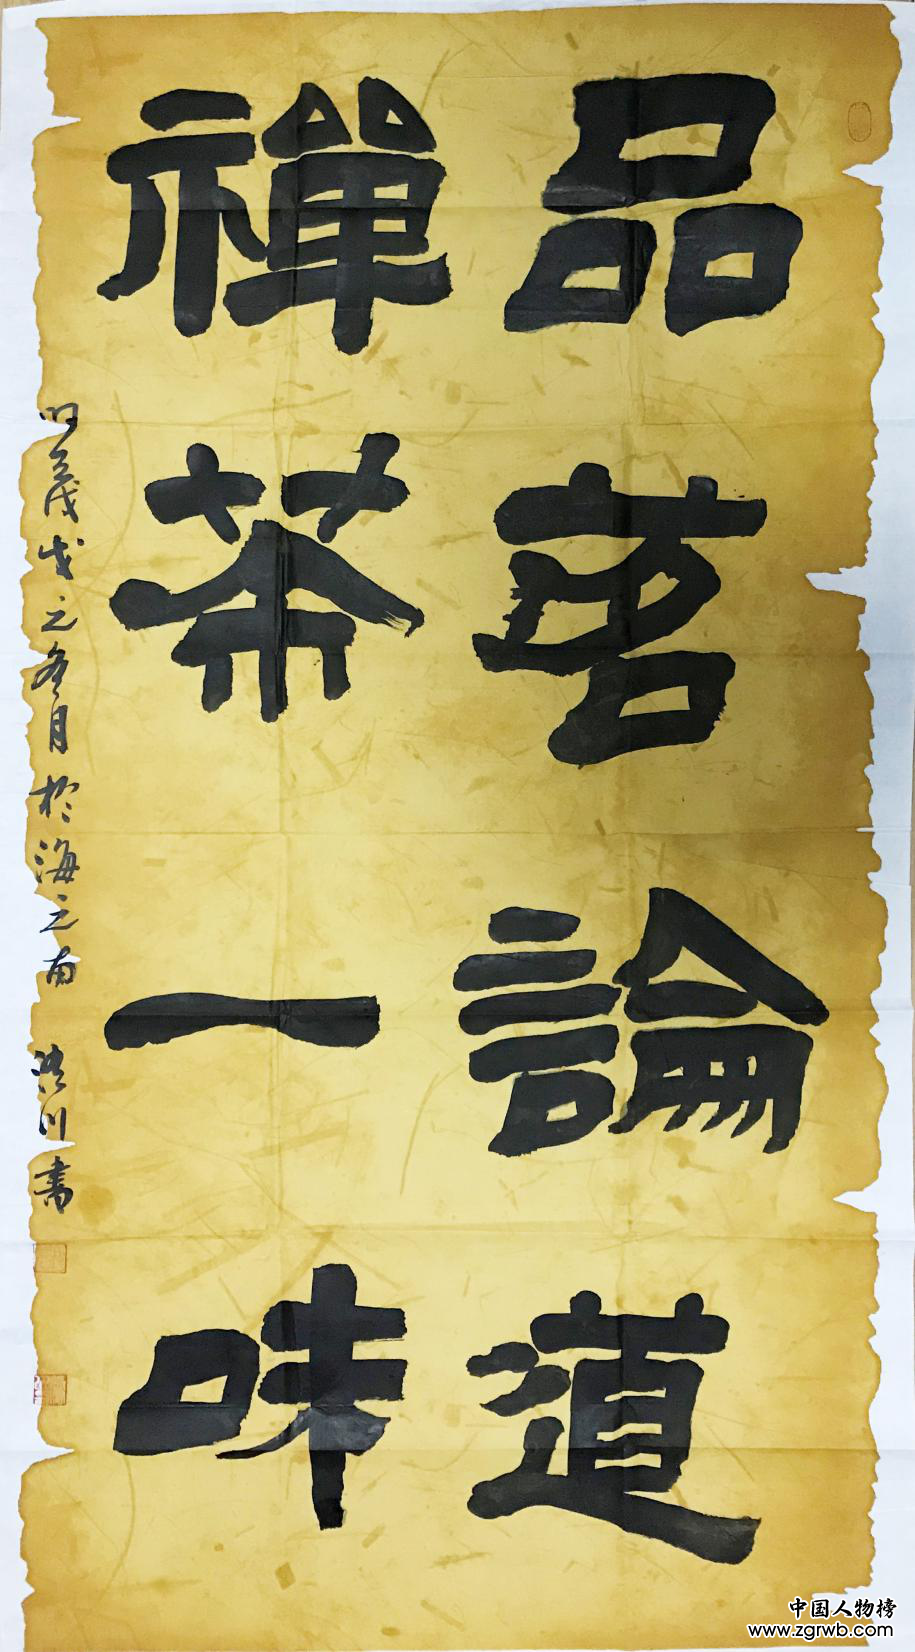 品茗論道
禪茶一味
时戊戌之冬月於海之南 洪川書
中国人物榜
www.zgrwb.com